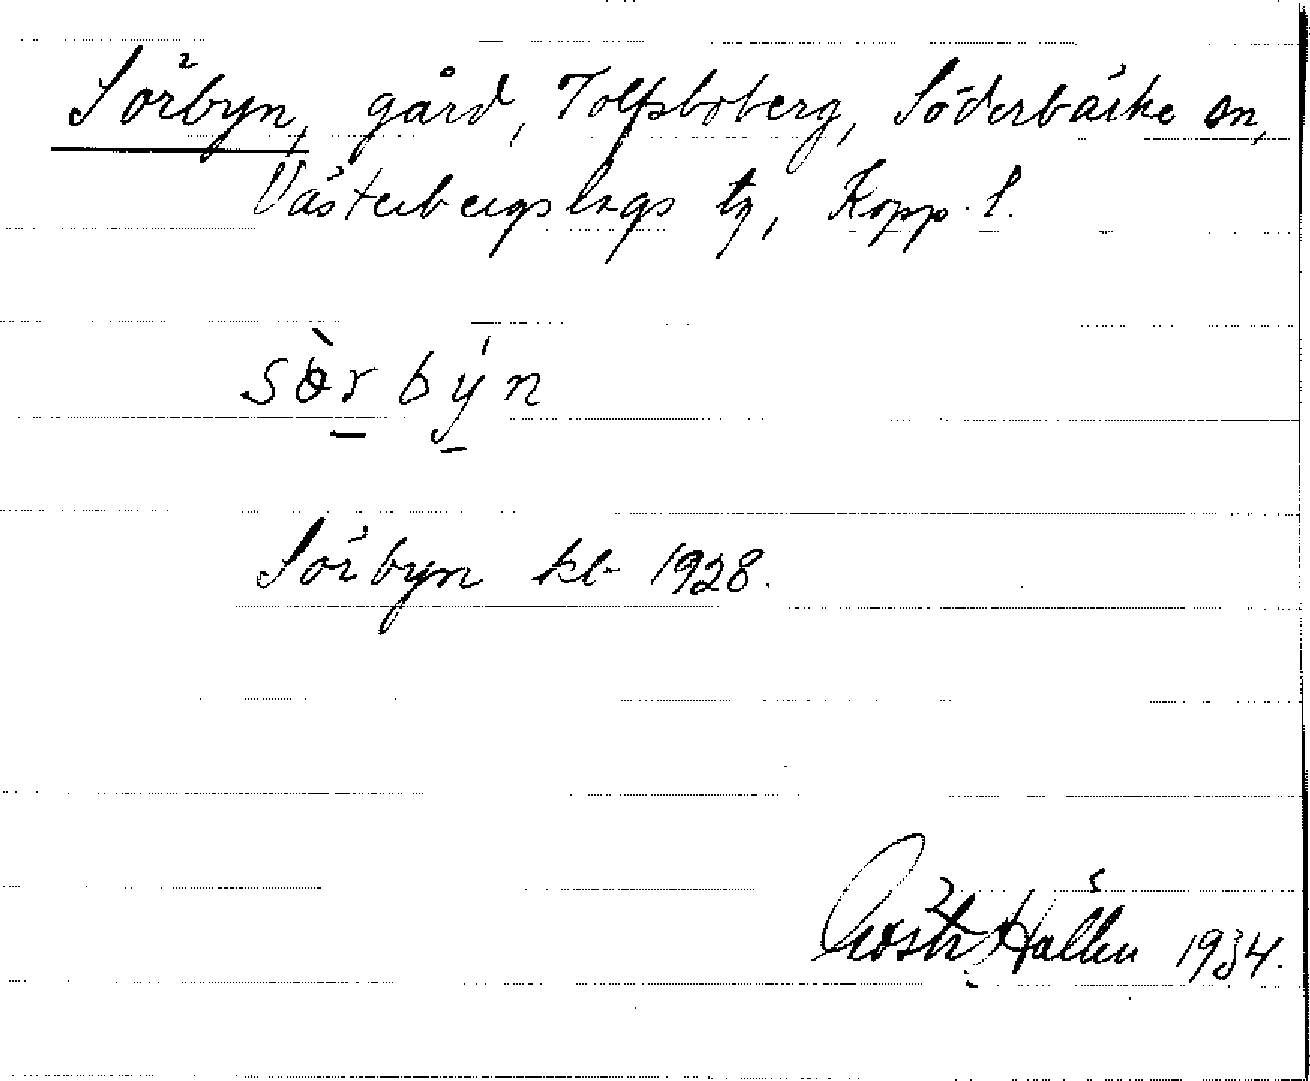 Sörbyn, gård, Tolfsboberg, Söderbärke sn,
Västerbergslags tg, Kopp. l.
sör byn
Sörbyn kb 1928.
Hållén 1934.